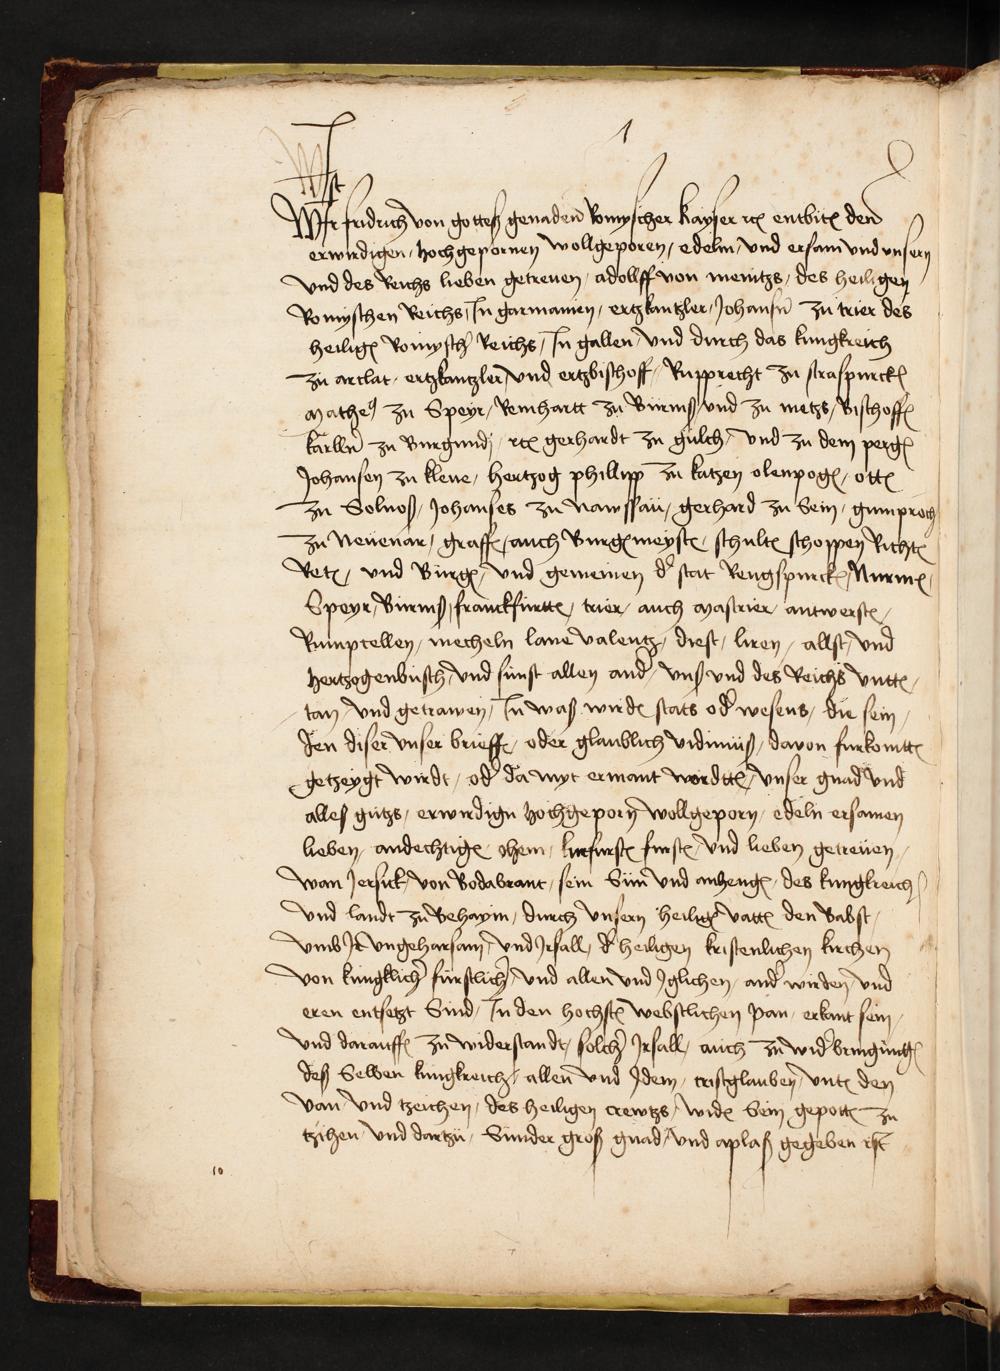 1
Ist
Wir fridrich von gottes genaden Romyscher kayser etc entbitn den
erwirdigen, hochgepornen wollgeporen, edeln, und ersam und unsern
und des Reichs lieben getreuen, adollff von meintzs, des heiligen
Romyschen Reichs, In garmanien, ertzkantzler, Johansn zu trier des
heilign Romysch Reichs, In gallen, und durch das kungkreich
zu arclat, ertzkantzler, und ertzbischoff, Rupprecht zu straspurck
Matheus zu Speyr, Reinhartt zu Wurms, und zu metzs, Bischoffn
karlln zu Burgundj, etc gerhardt zu gulch, und zu dem pergn
Johansen zu kleve, hertzog phillipp zu katzen olenpogn, ottn
zu Solnss, Johanses zu Nawssau, gerhard zu Sein, gumproch
zu Neuenar, graffn, auch Burgmeystn, schultn schoppen Richtn
Retn, und Burgn, und gemeinen der stat Rengspurck, Nurmn,
Speyr, Wurms, franckfurttn, trier, auch Mastrier antwerfn,
Rumprellen, mecheln lave valentz, diest, liren, allst, und
hertzogenbusch, und sunst allen ander, uns und des Reichs untn,
tan, und getrawen, In was wirdn stats oder wesens, die sein,
den diser unser brieffn, oder glaublich vidimuss, davon furkomtn
getzeygt wirdt, oder da myt ermant wordtn, unser gnad und
alles gutzs, erwirdign hochgeporn wollgeporn, edeln ersamen
lieben, andechtign, ohem, kurfurstn furstn, und lieben getreuen,
wan Jersick, von Bodabrant, sein Sun und anhengn, des kungkreich
und landt zu Behaym, durch unsern heilign vattn den Babst,
umb Jr ungeharsam, und Jrsall, der heiligen kristenlichen kirchen
von kungklicher furstlicher, und allen und Jglichen, ander wirden, und
eren entsetzt Sind, In den hochstn webstlichen pan, erkant sein,
und darauffn zu widerstandt, solcher Jrsall, auch zu wider bringungn
des Selben kungkreichs, allen und Jdem, cristglauben, untn den
van, und tzeichen, des heiligen crewtzs, widn Sein gepottn zu
tzihen, und dartzu, Sunder gross gnad, und aplass gegeben ist
10